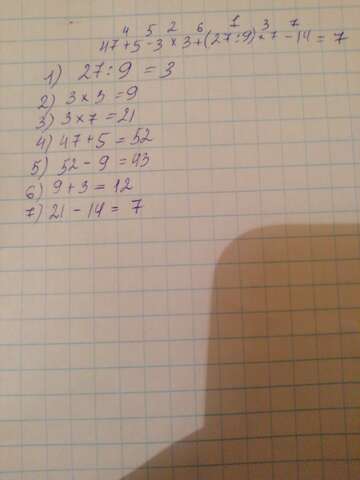 4 5 2 6 1 3 7
47+5-3×3+(27:9)×7-14=7
1) 27:9=3
2) 3×3=9
3) 3×7=21
4) 47+5=52
5) 52-9=43
6) 9+3=12
7) 21-14=7